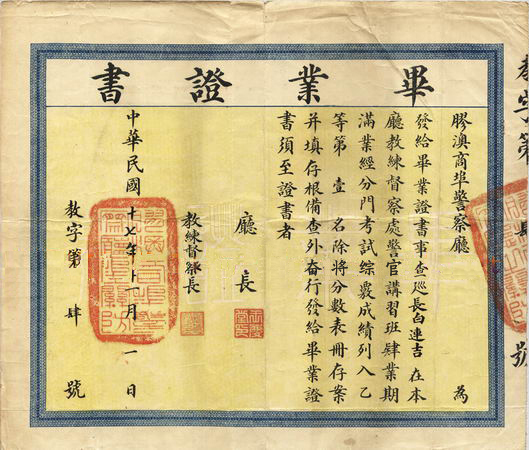 畢業證書
膠澳商埠警察廳 為
發給畢業證書事查廵長白連吉 在本
廳教練督察處警官講習班肄業期
滿業經分門考試綜覈成績列入乙
等第 壹 名除將分數表冊存案
并填存根備查外行發給畢業證
書須至證書者
廳 長
教練督察長
中華民國十七年十一月 一 日
教字第 肆 號